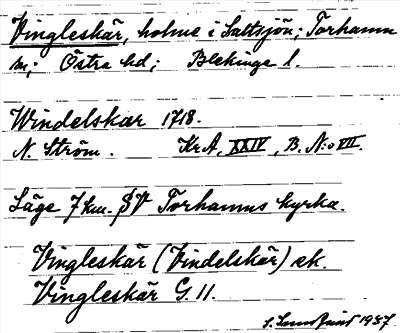 Vingleskär, holme i Saltsjön; Torhamn
sn; Östra hd; Blekinge l.
Windelskär 1718.
N. Ström. KrA, XXIV, B. N:o VII.
Läge 7 km. SV Torhamns kyrka.
Vingleskär (Vindelskär) ek.
Vingleskär G. 11.
1937